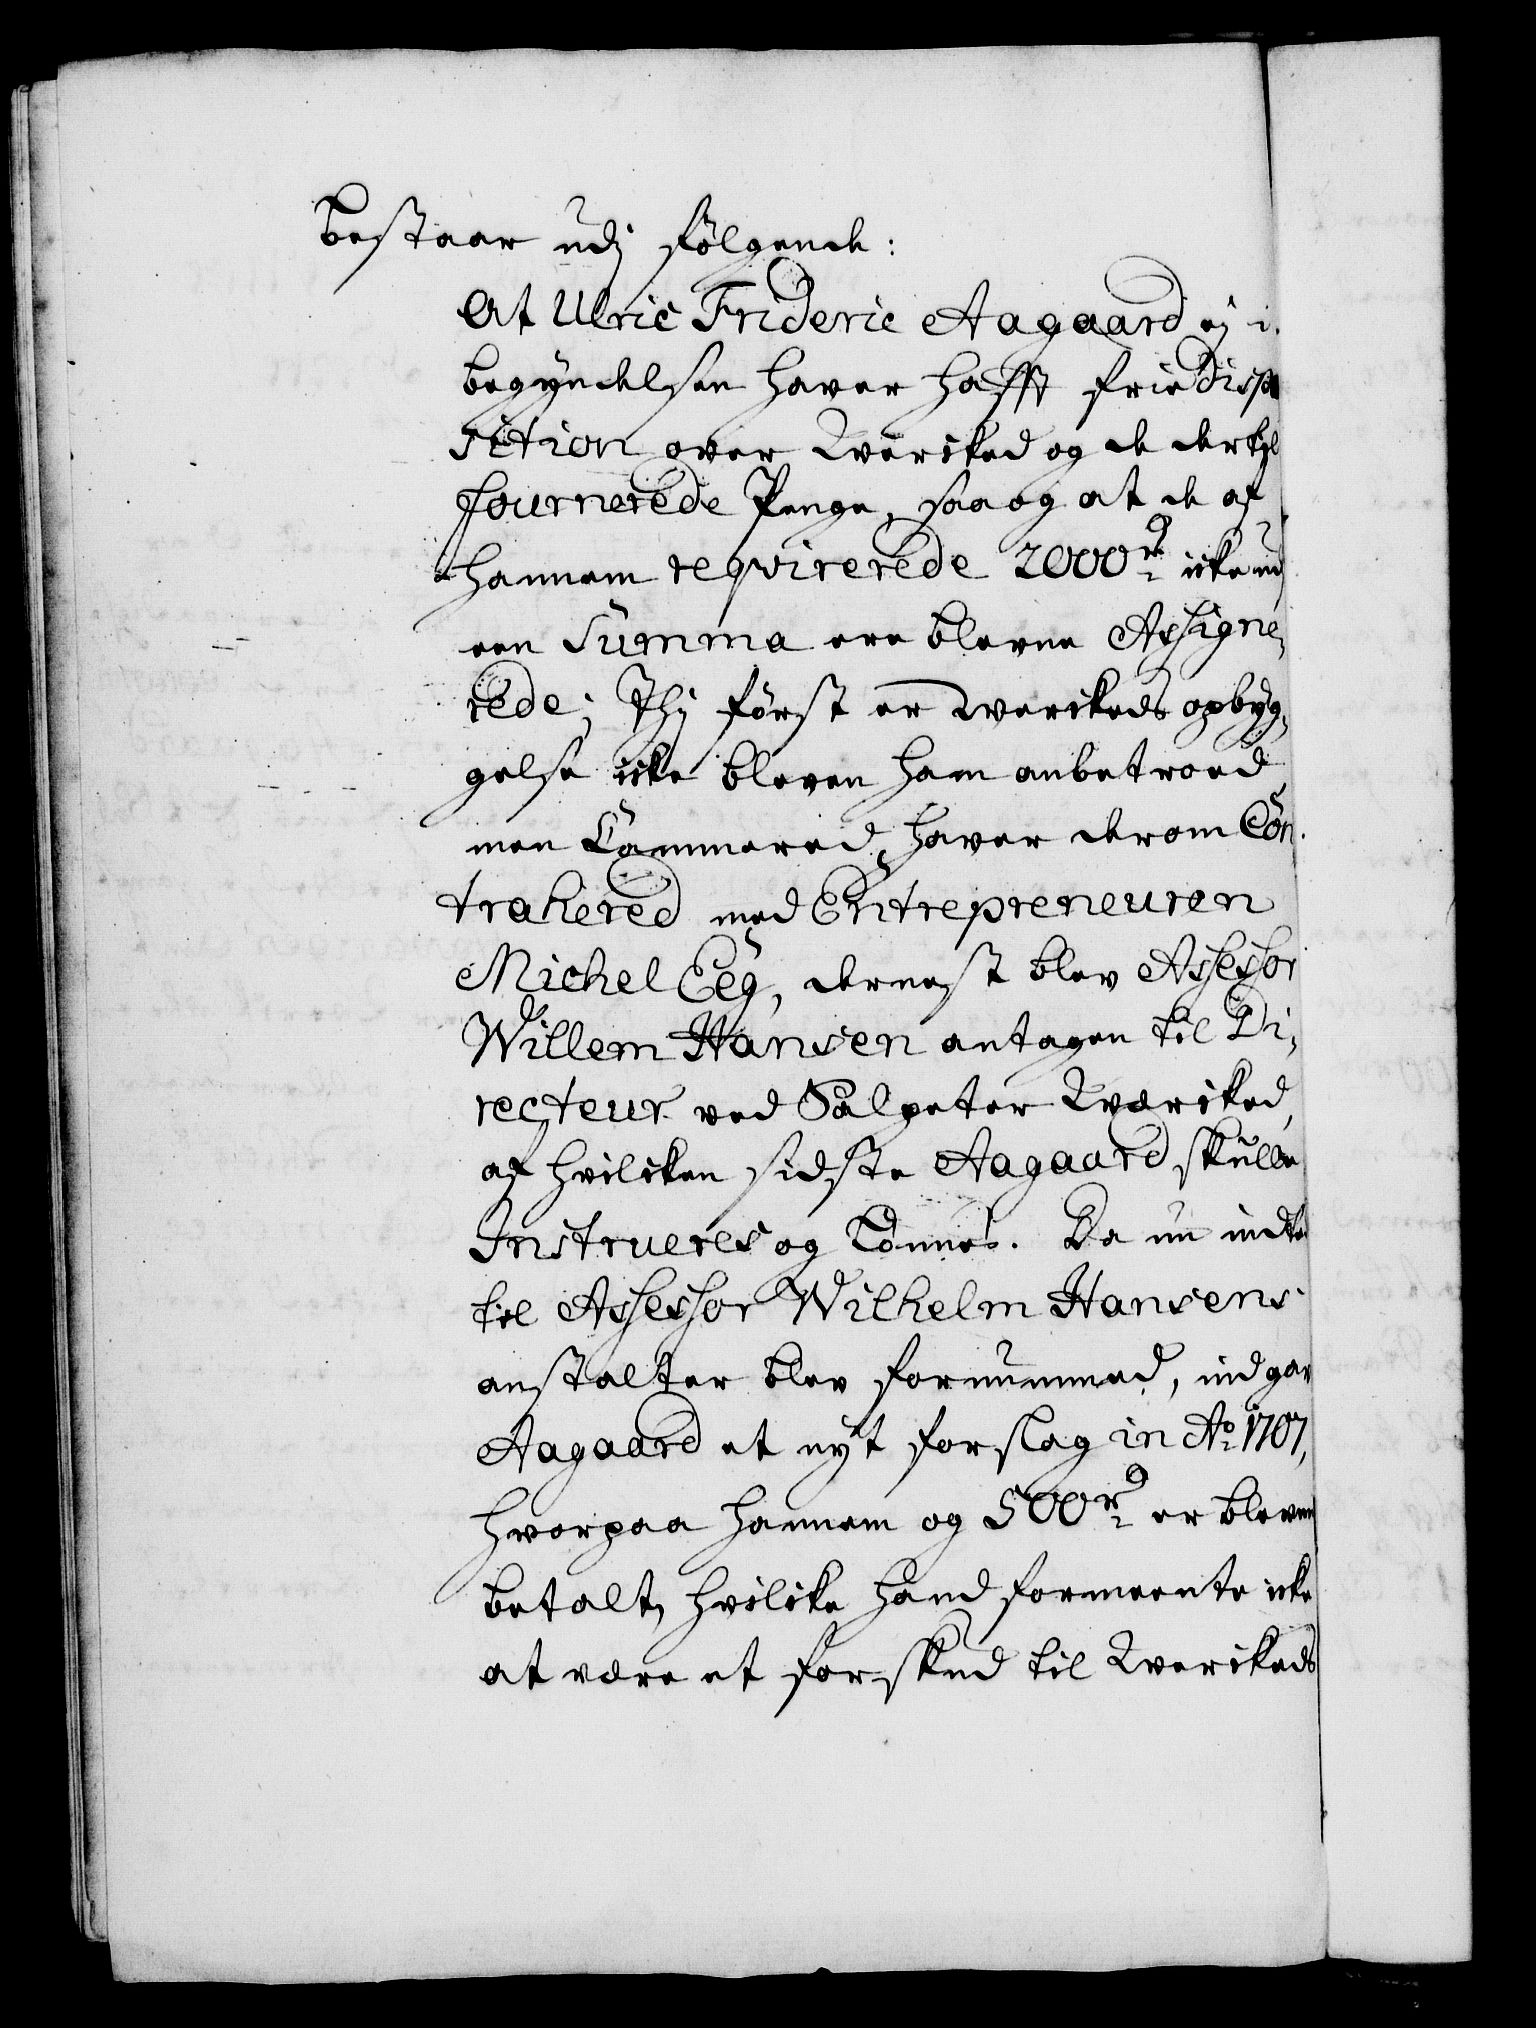 bestaar udj følgende:
At Ulric Frideric Aagaard ej i
begyndelsen haver hafft frie Dispo
sition over Wercked og de dertil
fournerede Penge, saa og at de af
hannem reqvirerede 2000 rd icke ud
een Summa ere blevne Assigne,
rede; Thj først er Werckeds opbyg,
gelse icke bleven ham anbetroed,
men Cammered haver derom Con
traherred med Entrepreneuren
Michel Eeg, dernest blev Assessor
Willem Hansen antagen til Di,
recteur ved Salpeter Wercked,
af hvilcken sidste Aagaard skulle
Instrueres og Lønnes. Da nu indted
til Assessor Wilhelm Hansens
anstalter blev fornummed, indgav
Aagaard et nyt forslag in Ao 1707,
hvorpaa hannem og 500 rd er bleven
betalt, hvilcke hand formeente icke
at være et forskud til Werckeds